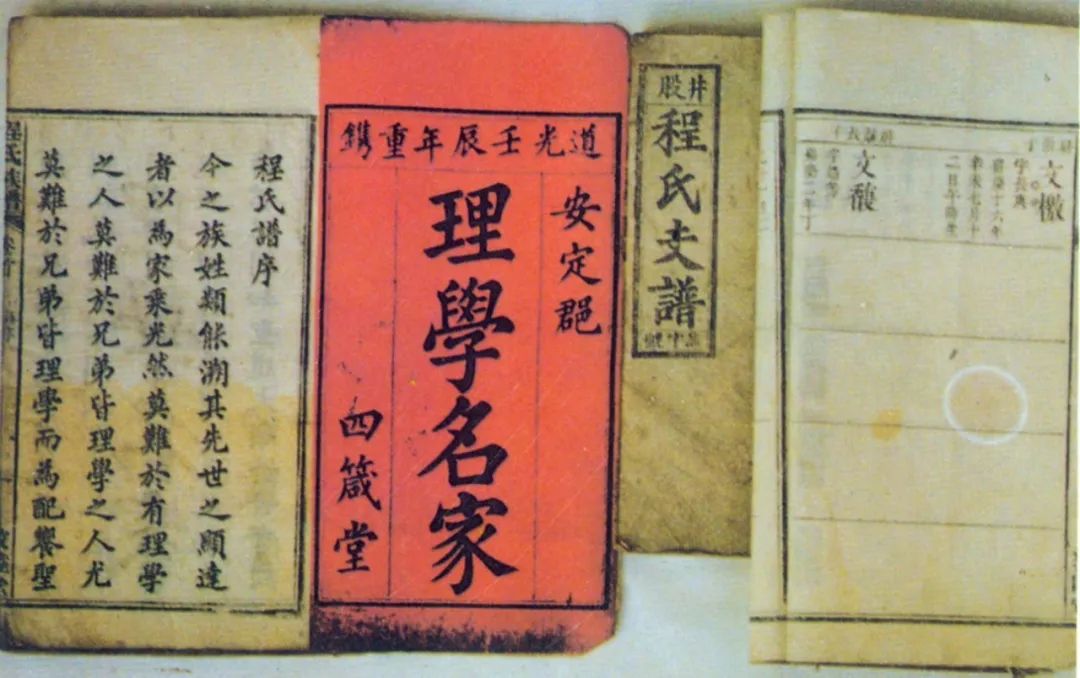 文檄
辛未七月十
文馥
井股
程氏支譜
道光壬辰年重鐫
安定郡
理學名家
四箴堂
程氏譜序
今之族姓類能溯其先世之顯達
者以為家乘光然莫難於有理學
之人莫難於兄弟皆理學之人尤
莫難於兄弟皆理學而為配饗聖
程氏族譜